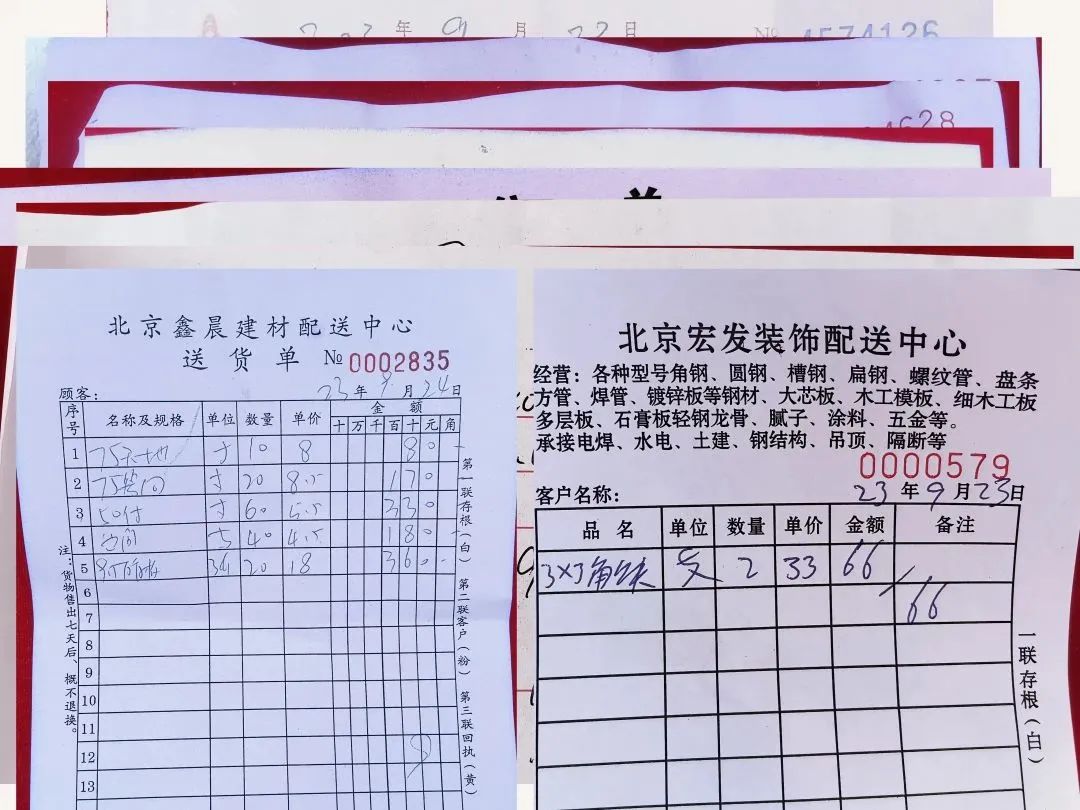 年 9 月 22 日 № 4574126
4628
北京鑫晨建材配送中心
送货单 № 0002835
顾客： 23 年 9 月 24 日
序号 名称及规格 单位 数量 单价 金额
十 万 千 百 十 元 角
1 75天地 寸 10 8 80
2 寸 20 8.5 170
3 寸 60 5.5 330
4 40 4.5 180
5 20 18 360
6
7
8
9
10
11
12
13
注：货物售出七天后、概不退换。
第一联存根（白） 第二联客户（粉） 第三联回执（黄）
北京宏发装饰配送中心
经营：各种型号角钢、圆钢、槽钢、扁钢、螺纹管、盘条
方管、焊管、镀锌板等钢材、大芯板、木工模板、细木工板
多层板、石膏板轻钢龙骨、腻子、涂料、五金等。
承接电焊、水电、土建、钢结构、吊顶、隔断等
0000579
客户名称： 23 年 9 月 23 日
品名 单位 数量 单价 金额 备注
3×3角铁 支 2 33 66
66
一联存根（白）